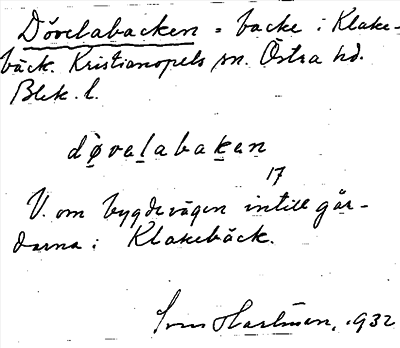 Dövelabacken = backe i Klake-
bäck. Kristianopels sn. Östra hd.
Blek. l.
dövelabakен
17
V. om bygdevägen intill går-
darna i Klakebäck.
Sven Hartman, 1932